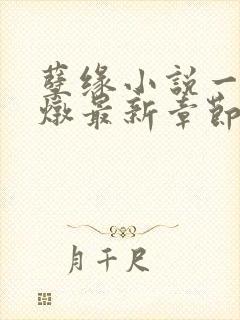 孽缘小说一
燉最新章節
月千尺